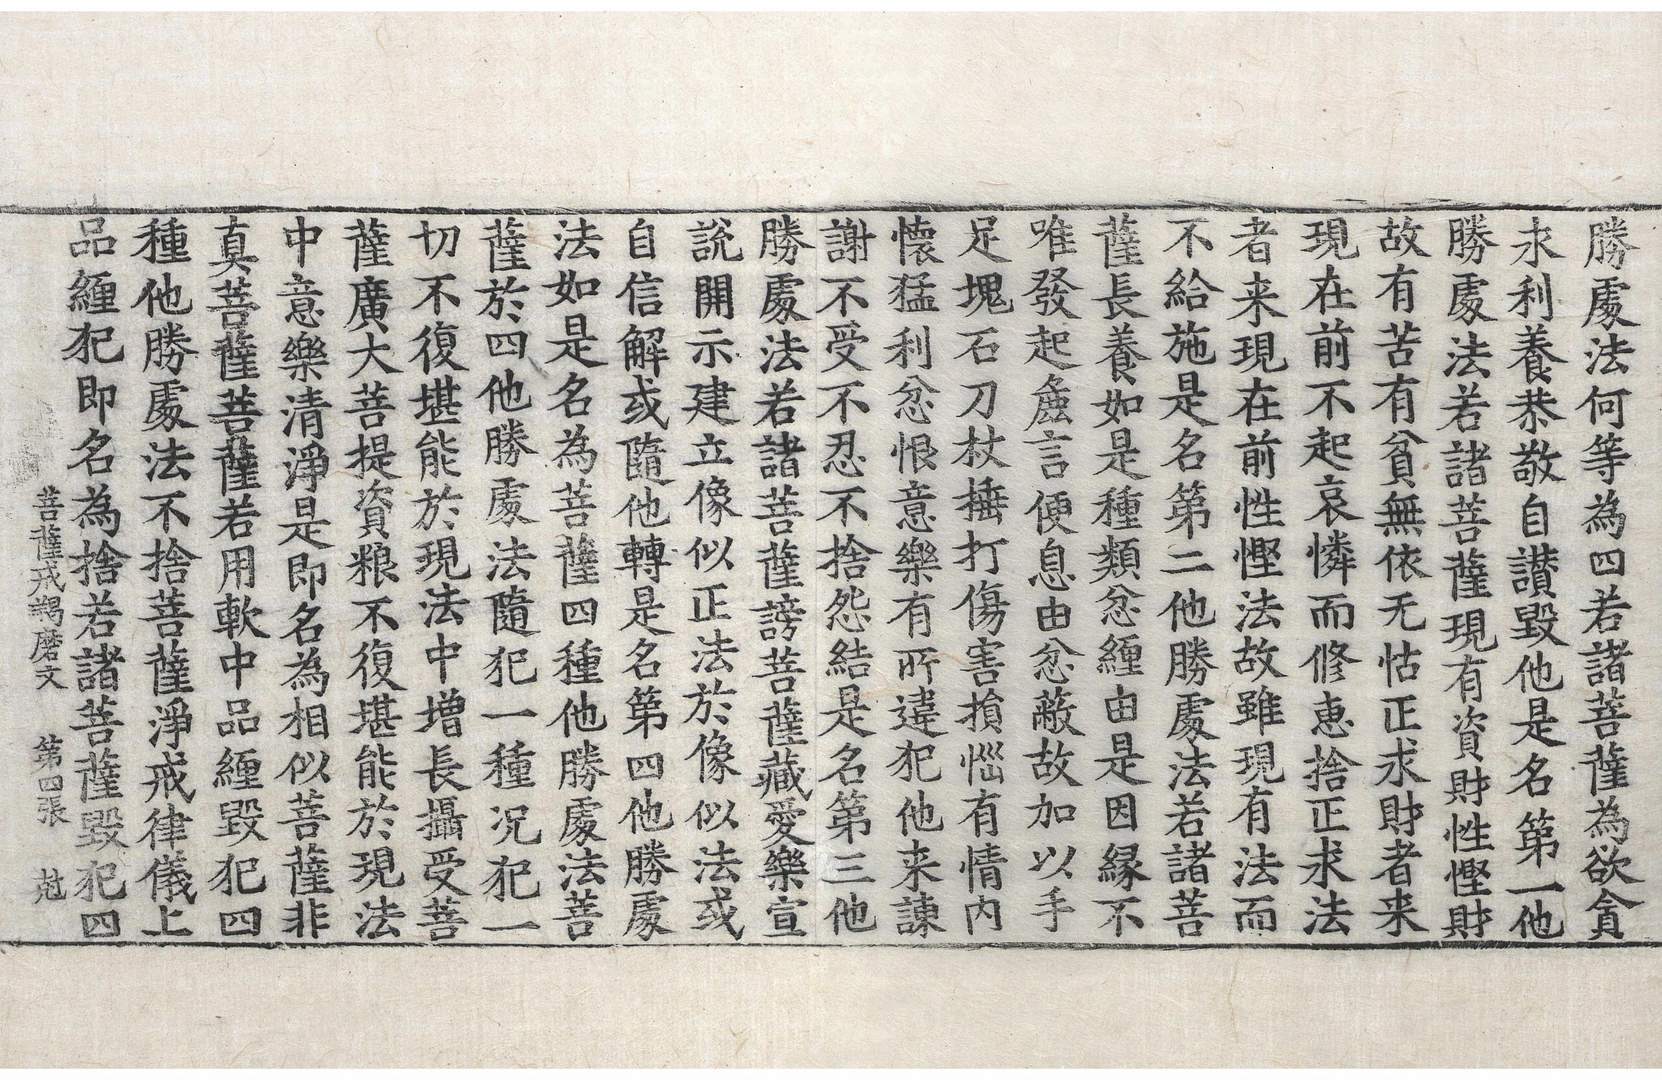 勝處法何等為四若諸菩薩為欲貪
求利養恭敬自讃毀他是名第一他
勝處法若諸菩薩現有資財性慳財
故有苦有貧無依无怙正求財者来
現在前不起哀憐而修惠捨正求法
者来現在前性慳法故雖現有法而
不給施是名第二他勝處法若諸菩
薩長養如是種類忿纏由是因縁不
唯發起麁言便息由忿蔽故加以手
足塊石刀杖捶打傷害損惱有情内
懷猛利忿恨意樂有所違犯他来諫
謝不受不忍不捨怨結是名第三他
勝處法若諸菩薩謗菩薩藏愛樂宣
說開示建立像似正法於像似法或
自信解或隨他轉是名第四他勝處
法如是名為菩薩四種他勝處法菩
薩於四他勝處法隨犯一種況犯一
切不復堪能於現法中增長攝受菩
薩廣大菩提資粮不復堪能於現法
中意樂清淨是即名為相似菩薩非
真菩薩菩薩若用軟中品纏毀犯四
種他勝處法不捨菩薩淨戒律儀上
品纏犯即名為捨若諸菩薩毀犯四
菩薩戒羯磨文 第四張